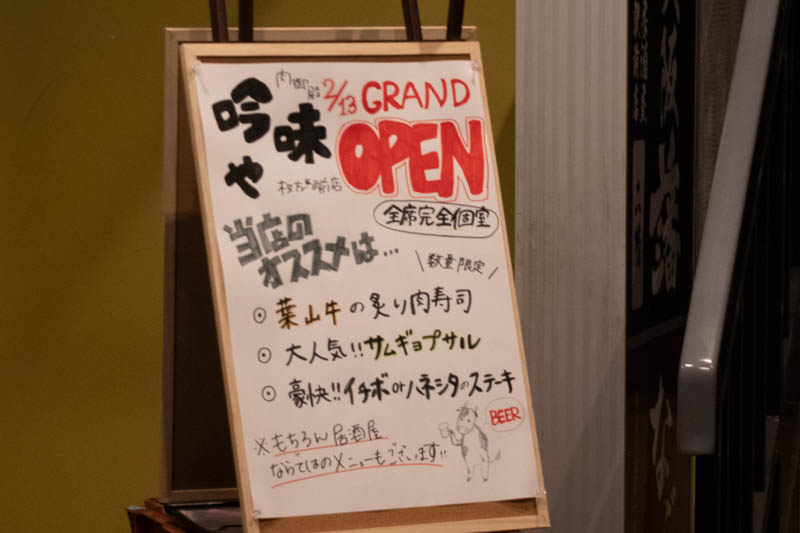 肉御殿
吟味や
枚方駅前店
2/13 GRAND
OPEN
全席完全個室
当店の
オススメは...
数量限定
葉山牛の炙り肉寿司
大人気!!サムギョプサル
豪快!!イチボorハネシタのステーキ
BEER
※もちろん居酒屋
ならではのメニューもございます!!
大阪